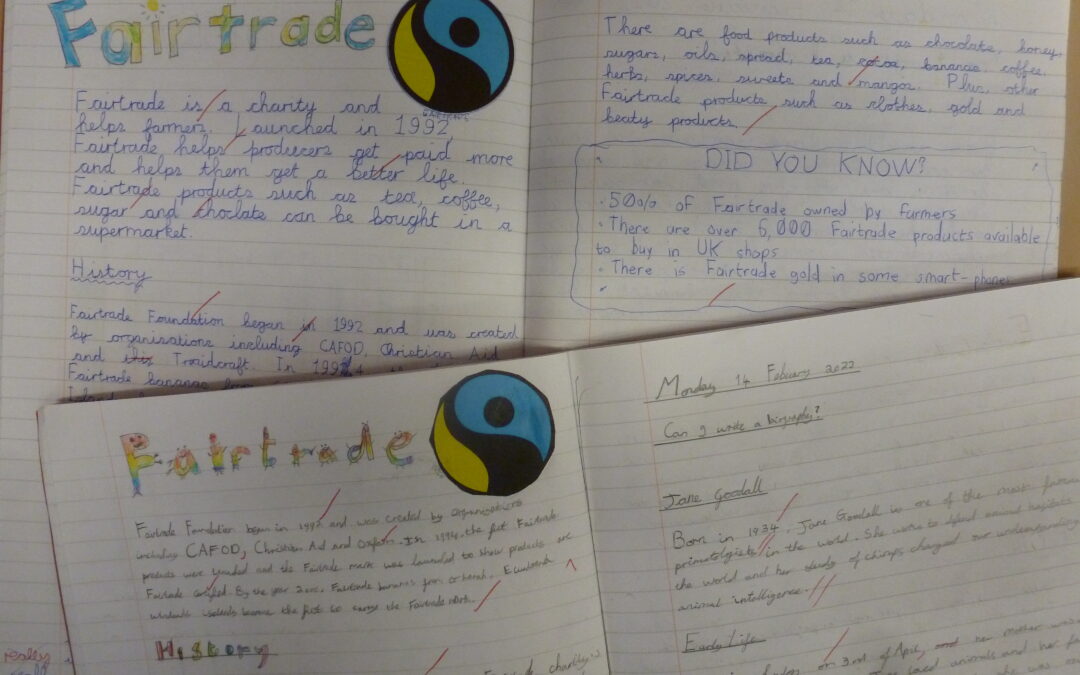 Fairtrade
Fairtrade is a charity and
helps farmers. Launched in 1992,
Fairtrade helps producers get paid more
and helps them get a better life.
Fairtrade products such as tea, coffee,
sugar and choclate can be bought in a
supermarket.
History
Fairtrade Foundation began in 1992 and was created
by organisations including CAFOD, Christian Aid
and Traidcraft. In 1994
Fairtrade bananas from
There are food products such as chocolate, honey,
sugars, oils, spread, tea, cocoa, bananas, coffee,
herbs, spices, sweets and mangos. Plus, other
Fairtrade products such as clothes, gold and
beaty products.
DID YOU KNOW?
• 50% of Fairtrade owned by farmers
• There are over 6,000 Fairtrade products available
to buy in UK shops
• There is Fairtrade gold in some smart-phones
Fairtrade
Fairtrade Foundation began in 1992 and was created by Organisations
including CAFOD, Christian Aid and Oxfam. In 1994, the first Fairtrade
products were launched and the Fairtrade mark was launched to show products are
Fairtrade certified. By the year 2000, Fairtrade bananas from
windwards islands became the first to carry the Fairtrade mark.
History
Monday 14 Febuary 2022
Can I write a biography?
Jane Goodall
Born in 1934, Jane Goodall is one of the most famous
primatologists in the world. She works to defend animal habitats
the world and her study of chimps changed our understanding
animal intelligence.
Early Life
on 3rd of April, and her mother was
loved animals and her
she was
really